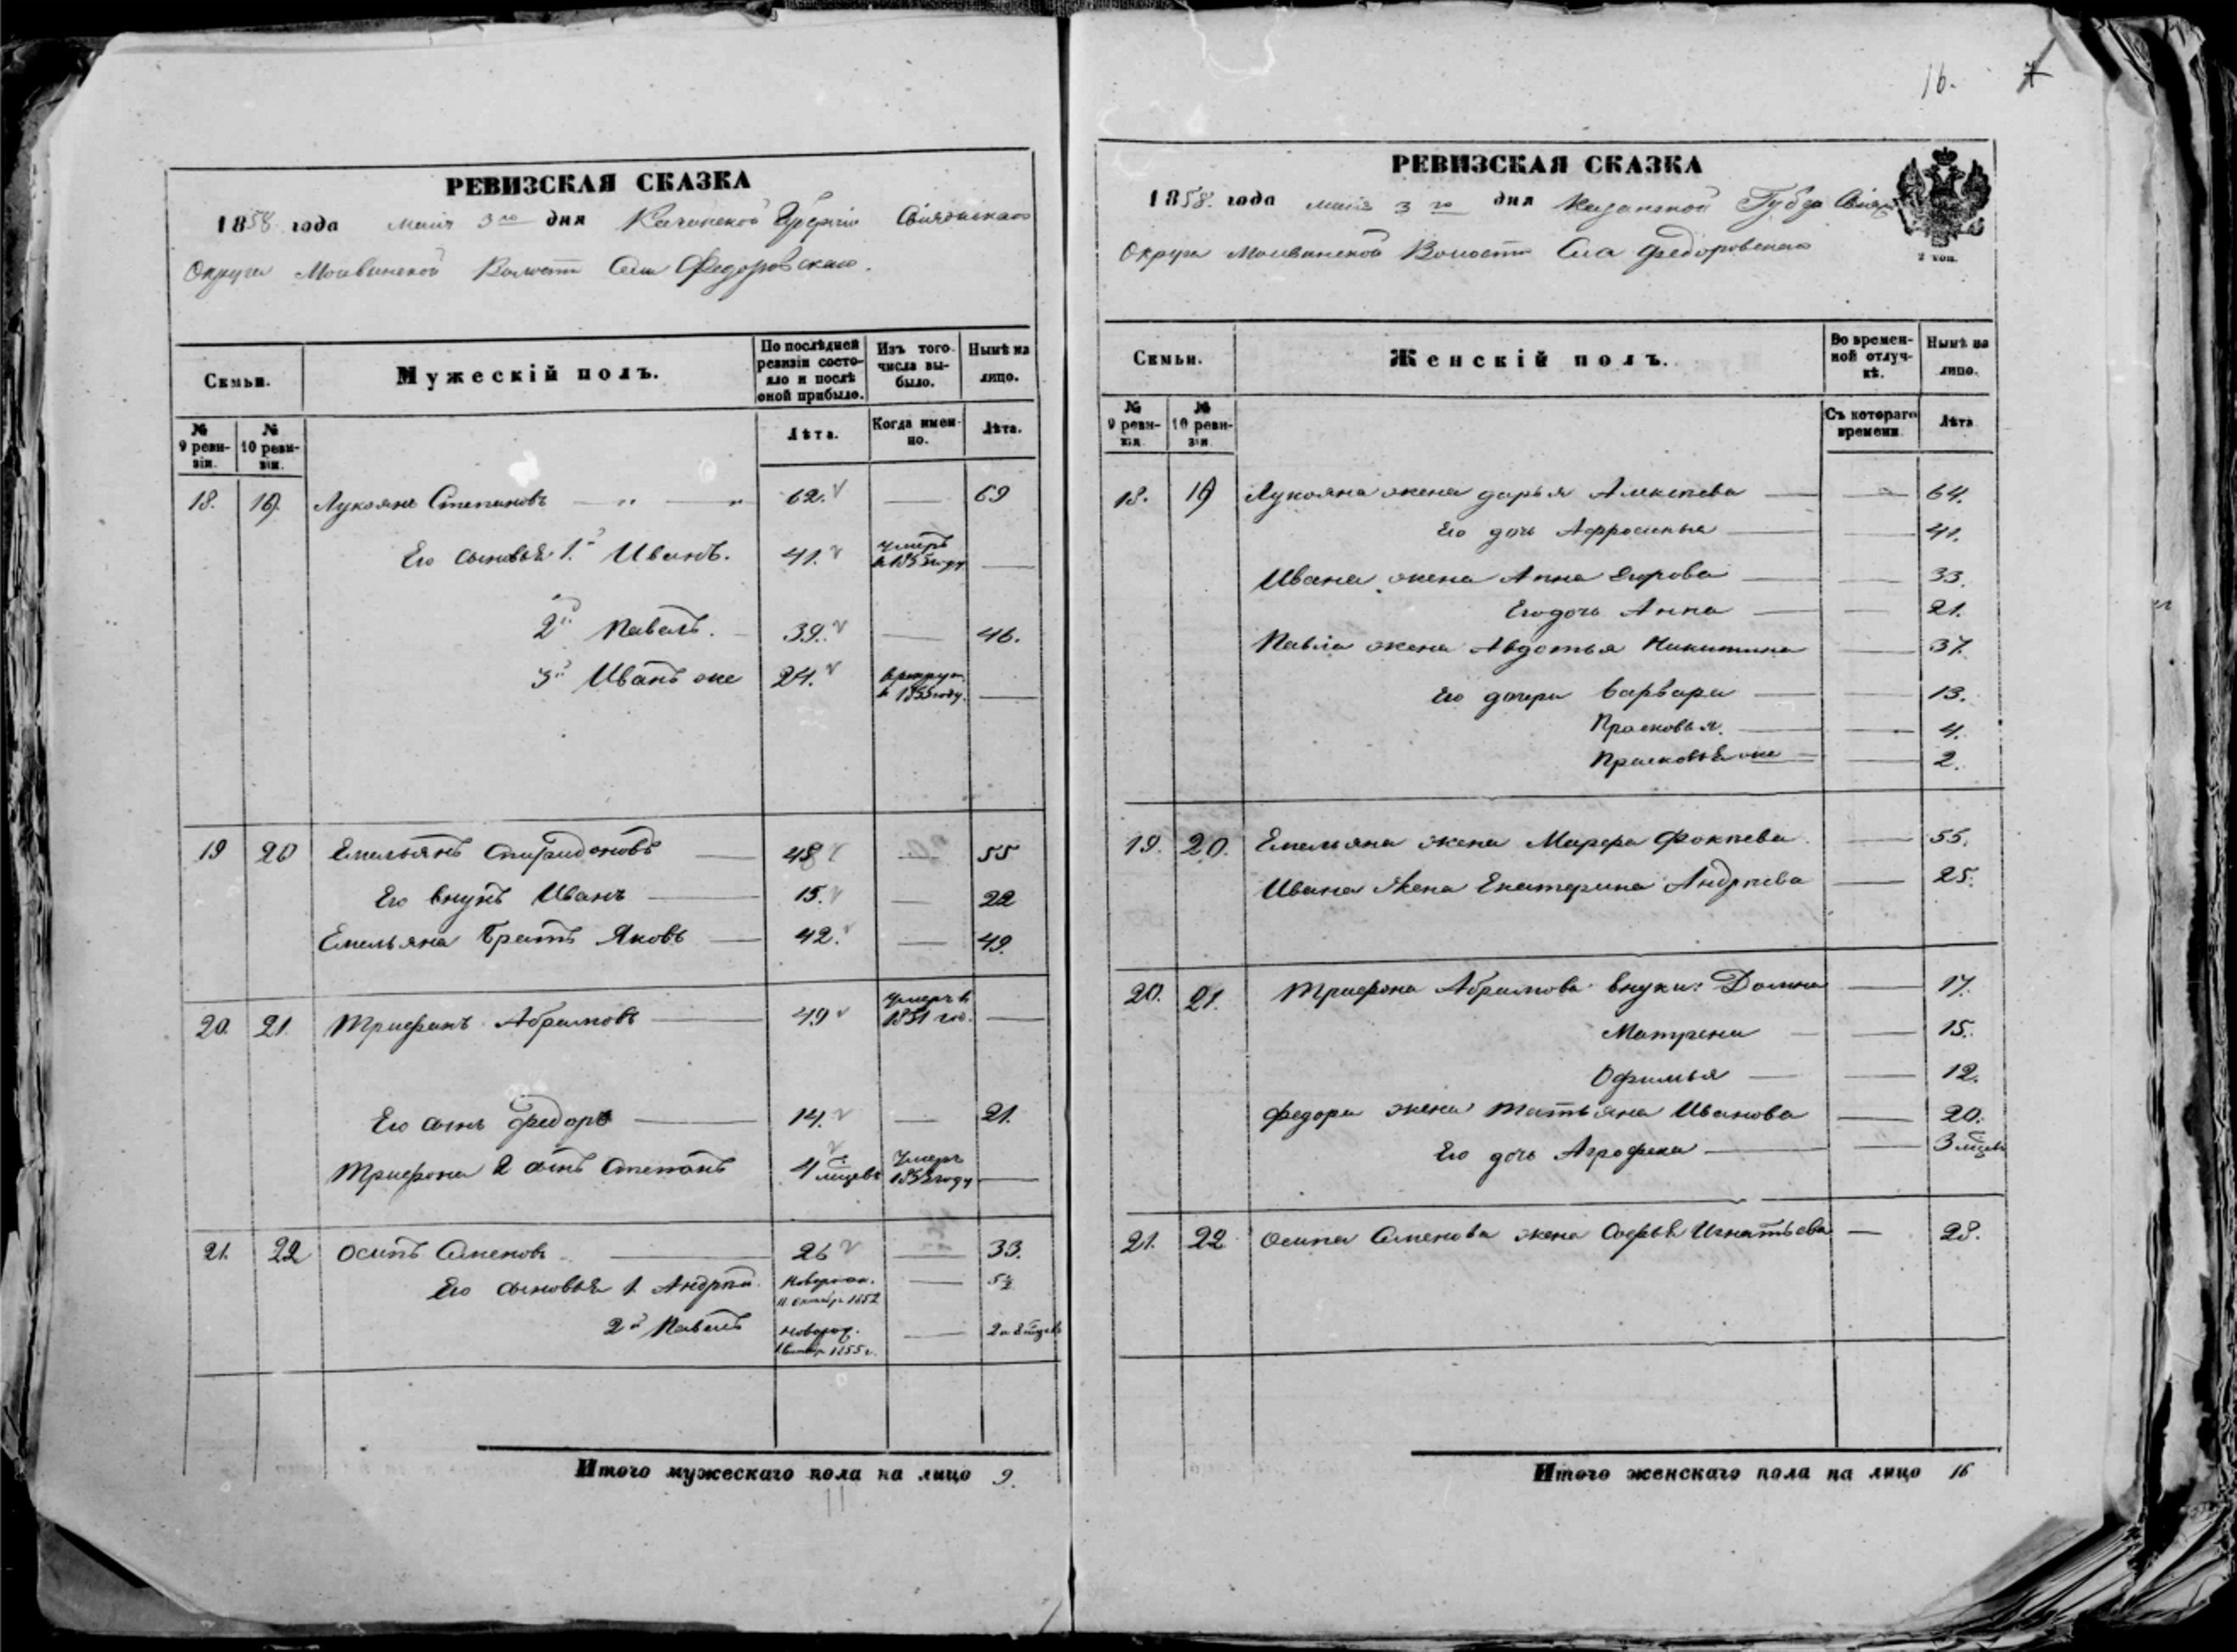 16. 7
РЕВИЗСКАЯ СКАЗКА
1858 года маия 3го дня Казанской Губернiи Свiяжскаго
Округи Молвинской Волости Села Федоровскаго.
Семьи.
Мужескiй полъ.
По послѣдней ревизiи состояло и послѣ оной прибыло.
Изъ того числа выбыло.
Нынѣ на лицо.
№ 9 ревизiи.
№ 10 ревизiи.
Лѣта.
Когда именно.
Лѣта.
18. 19. Лукоянъ Степановъ — " — " 62. — 69
Его сыновья 1й Иванъ. 41. умеръ в 1855 году —
2й Павелъ. 39. — 46.
3й Иванъ же 24. в рекрут. в 1855 году. —
19 20 Емельянъ Спиридоновъ — 48 — 55
Его внукъ Иванъ — 15. — 22
Емельяна братъ Яковъ — 42. — 49.
20. 21. Трифонъ Абрамовъ — 49 умеръ в 1851 год. —
Его сынъ Федоръ — 14. — 21.
Трифона 2 сынъ Степанъ 4 мцевъ умеръ 1855 году —
21. 22 Осипъ Семеновъ — 26 — 33.
Его сыновья 1. Андрей новорож. 11 октября 1852 — 5½
2й Павелъ новорож. 1855 г. — 2 и 8 мцевъ
Итого мужескаго пола на лицо 9.
11
РЕВИЗСКАЯ СКАЗКА
1858. года маия 3го дня Казанской Губер Свiяж
Округи Молвинской Волости Села Федоровскаго
2 коп.
Семьи.
Женскiй полъ.
Во временной отлучкѣ.
Нынѣ на лицо.
№ 9 ревизiя.
№ 10 ревизiи.
Съ котораго времени.
Лѣта
18. 19 Лукояна жена дарья Алексѣева — — 64.
Его дочь Афросинья — 41.
Ивана жена Анна Егорова — — 33.
Его дочь Анна — — 21.
Павла жена Авдотья Никитина — 37.
Его дочери Варвара — — 13.
Прасковья. — — 4.
Прасковья же — — 2.
19. 20. Емельяна жена Марфа Фоктева. — 55.
Ивана жена Екатерина Андрѣева — 25.
20. 21. Трифона Абрамова внуки: Домна — 17.
Матрена — — 15.
Офимья — — 12.
Федора жена Татьяна Иванова — 20.
Его дочь Аграфена — — 3 мцев
21. 22 Осипа Семенова жена Софья Игнатьева — 28.
Итого женскаго пола на лицо 16